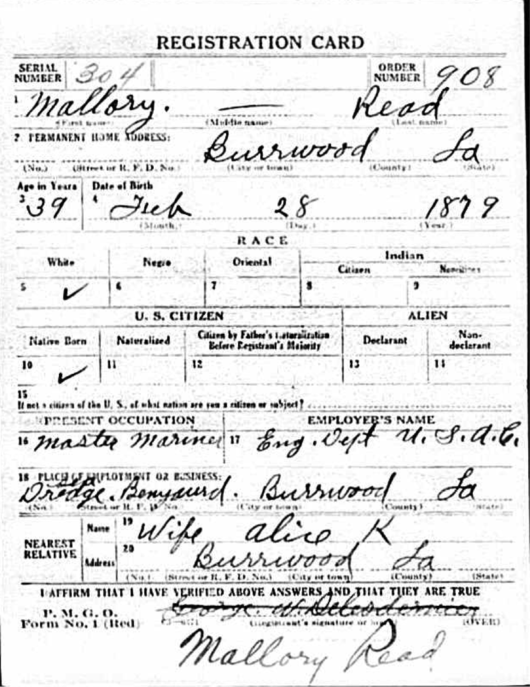 REGISTRATION CARD
SERIAL NUMBER 304 ORDER NUMBER 908
1 Mallory. — Read
(First name) (Middle name) (Last name)
2 PERMANENT HOME ADDRESS:
Burrwood La
(No.) (Street or R. F. D. No.) (City or town) (County) (State)
Age in Years Date of Birth
3 39 4 Feb 28 1879
(Month.) (Day.) (Year.)
RACE
White Negro Oriental Indian
Citizen Noncitizen
5 ✓ 6 7 8 9
U. S. CITIZEN ALIEN
Native Born Naturalized Citizen by Father's Naturalization Before Registrant's Majority Declarant Non-declarant
10 ✓ 11 12 13 14
15
If not a citizen of the U. S., of what nation are you a citizen or subject?
PRESENT OCCUPATION EMPLOYER'S NAME
16 Master Mariner 17 Eng. Dept U. S. A.
18 PLACE OF EMPLOYMENT OR BUSINESS:
Dredge. Benyaurd. Burrwood La
(No.) (Street or R. F. D. No.) (City or town) (County) (State)
NEAREST RELATIVE
Name 19 Wife Alice K
Address 20 Burrwood La
(No.) (Street or R. F. D. No.) (City or town) (County) (State)
I AFFIRM THAT I HAVE VERIFIED ABOVE ANSWERS AND THAT THEY ARE TRUE
P. M. G. O.
Form No. 1 (Red) (Registrant's signature or mark) (OVER)
George. W.
Mallory Read